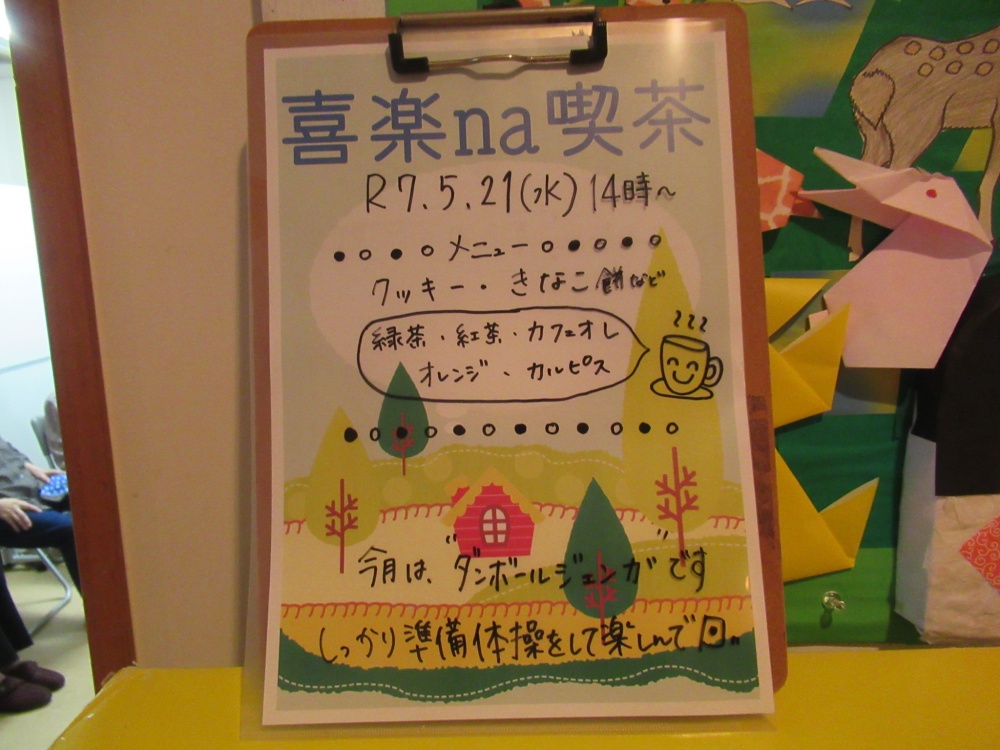 喜楽na喫茶
R7.5.21(水) 14時~
メニュー
クッキー・きなこ餅など
緑茶・紅茶・カフェオレ
オレンジ、カルピス
今月は、"ダンボールジェンガ"です
しっかり準備体操をして楽しんで